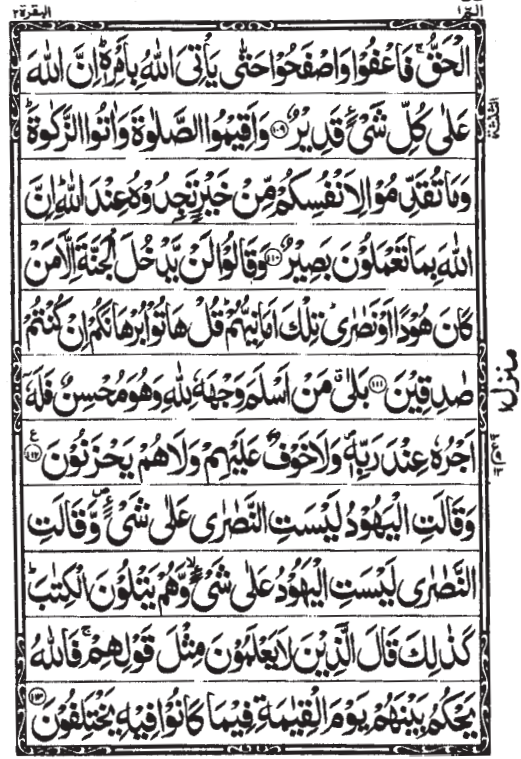 البقرة ٢
الٓمّٓ ١
الْحَقُّ ۚ فَاعْفُوْا وَاصْفَحُوْا حَتّٰى يَاْتِىَ اللّٰهُ بِاَمْرِهٖ ؕ اِنَّ اللّٰهَ
عَلٰى كُلِّ شَىْءٍ قَدِيْرٌ ﴿۱۰۹﴾ وَاَقِيْمُوا الصَّلٰوةَ وَاٰتُوا الزَّكٰوةَ ؕ
وَمَا تُقَدِّمُوْا لِاَنْفُسِكُمْ مِّنْ خَيْرٍ تَجِدُوْهُ عِنْدَ اللّٰهِ ؕ اِنَّ
اللّٰهَ بِمَا تَعْمَلُوْنَ بَصِيْرٌ ﴿۱۱۰﴾ وَقَالُوْا لَنْ يَّدْخُلَ الْجَنَّةَ اِلَّا مَنْ
كَانَ هُوْدًا اَوْ نَصٰرٰى ؕ تِلْكَ اَمَانِيُّهُمْ ؕ قُلْ هَاتُوْا بُرْهَانَكُمْ اِنْ كُنْتُمْ
صٰدِقِيْنَ ﴿۱۱۱﴾ بَلٰى ۗ مَنْ اَسْلَمَ وَجْهَهٗ لِلّٰهِ وَهُوَ مُحْسِنٌ فَلَهٗۤ
اَجْرُهٗ عِنْدَ رَبِّهٖ ۪ وَلَا خَوْفٌ عَلَيْهِمْ وَلَا هُمْ يَحْزَنُوْنَ ﴿۱۱۲﴾ ع
وَقَالَتِ الْيَهُوْدُ لَيْسَتِ النَّصٰرٰى عَلٰى شَىْءٍ ۪ وَّقَالَتِ
النَّصٰرٰى لَيْسَتِ الْيَهُوْدُ عَلٰى شَىْءٍ ۙ وَّهُمْ يَتْلُوْنَ الْكِتٰبَ ؕ
كَذٰلِكَ قَالَ الَّذِيْنَ لَا يَعْلَمُوْنَ مِثْلَ قَوْلِهِمْ ۚ فَاللّٰهُ
يَحْكُمُ بَيْنَهُمْ يَوْمَ الْقِيٰمَةِ فِيْمَا كَانُوْا فِيْهِ يَخْتَلِفُوْنَ ﴿۱۱۳﴾
الثلثة
منزل ١
ع
١٣